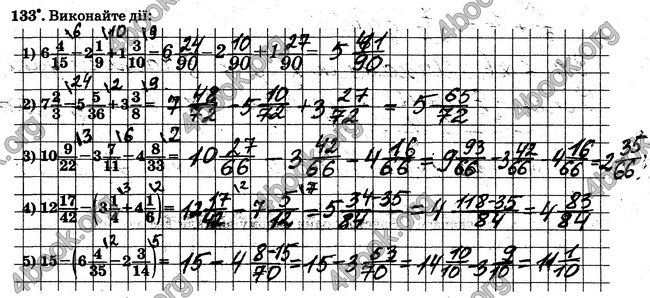 133°. Виконайте дії:
1) 6 4/15 - 2 1/9 + 1 3/10 = 6 24/90 - 2 10/90 + 1 27/90 = 5 41/90
2) 7 2/3 - 5 5/36 + 3 3/8 = 7 48/72 - 5 10/72 + 3 27/72 = 5 65/72
3) 10 9/22 - 3 7/11 - 4 8/33 = 10 27/66 - 3 42/66 - 4 16/66 = 9 93/66 - 3 42/66 - 4 16/66 = 2 35/66
4) 12 17/42 - (3 1/4 + 4 1/6) = 12 17/42 - 7 5/12 = 5 34-35/84 = 4 118-35/84 = 4 83/84
5) 15 - (6 4/35 - 2 3/14) = 15 - 4 8-15/70 = 15 - 3 63/70 = 14 10/10 - 3 9/10 = 11 1/10
4book.org